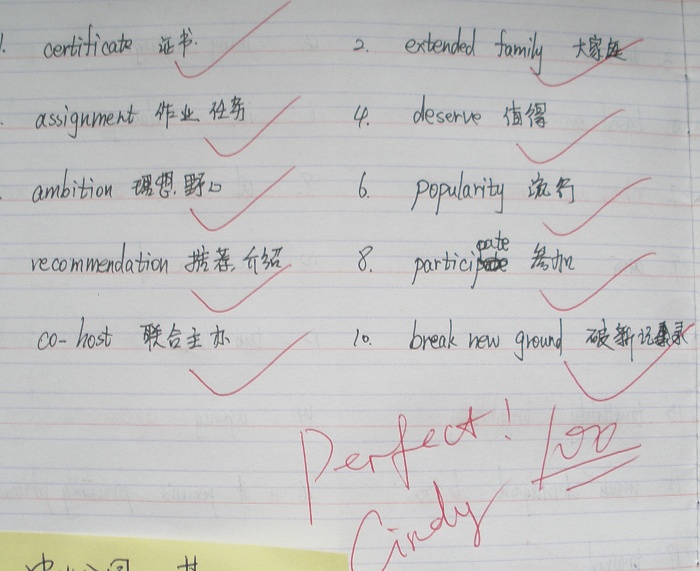 1. certificate 证书. 2. extended family 大家庭
assignment 作业 任务 4. deserve 值得
ambition 理想. 野心 6. popularity 流行
recommendation 推荐. 介绍 8. participate 参加
co-host 联合主办 10. break new ground 破新记录
Perfect! 100
Cindy